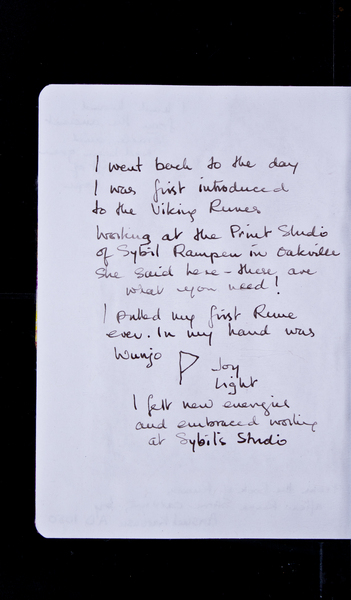 I went back to the day
I was first introduced
to the Viking Runes
Working at the Print Studio
of Sybil Rampen in Oakville
She said here - these are
what you need!
I pulled my first Rune
ever. In my hand was
Wunjo ᚹ Joy
Light
I felt new energies
and embraced working
at Sybil's Studio